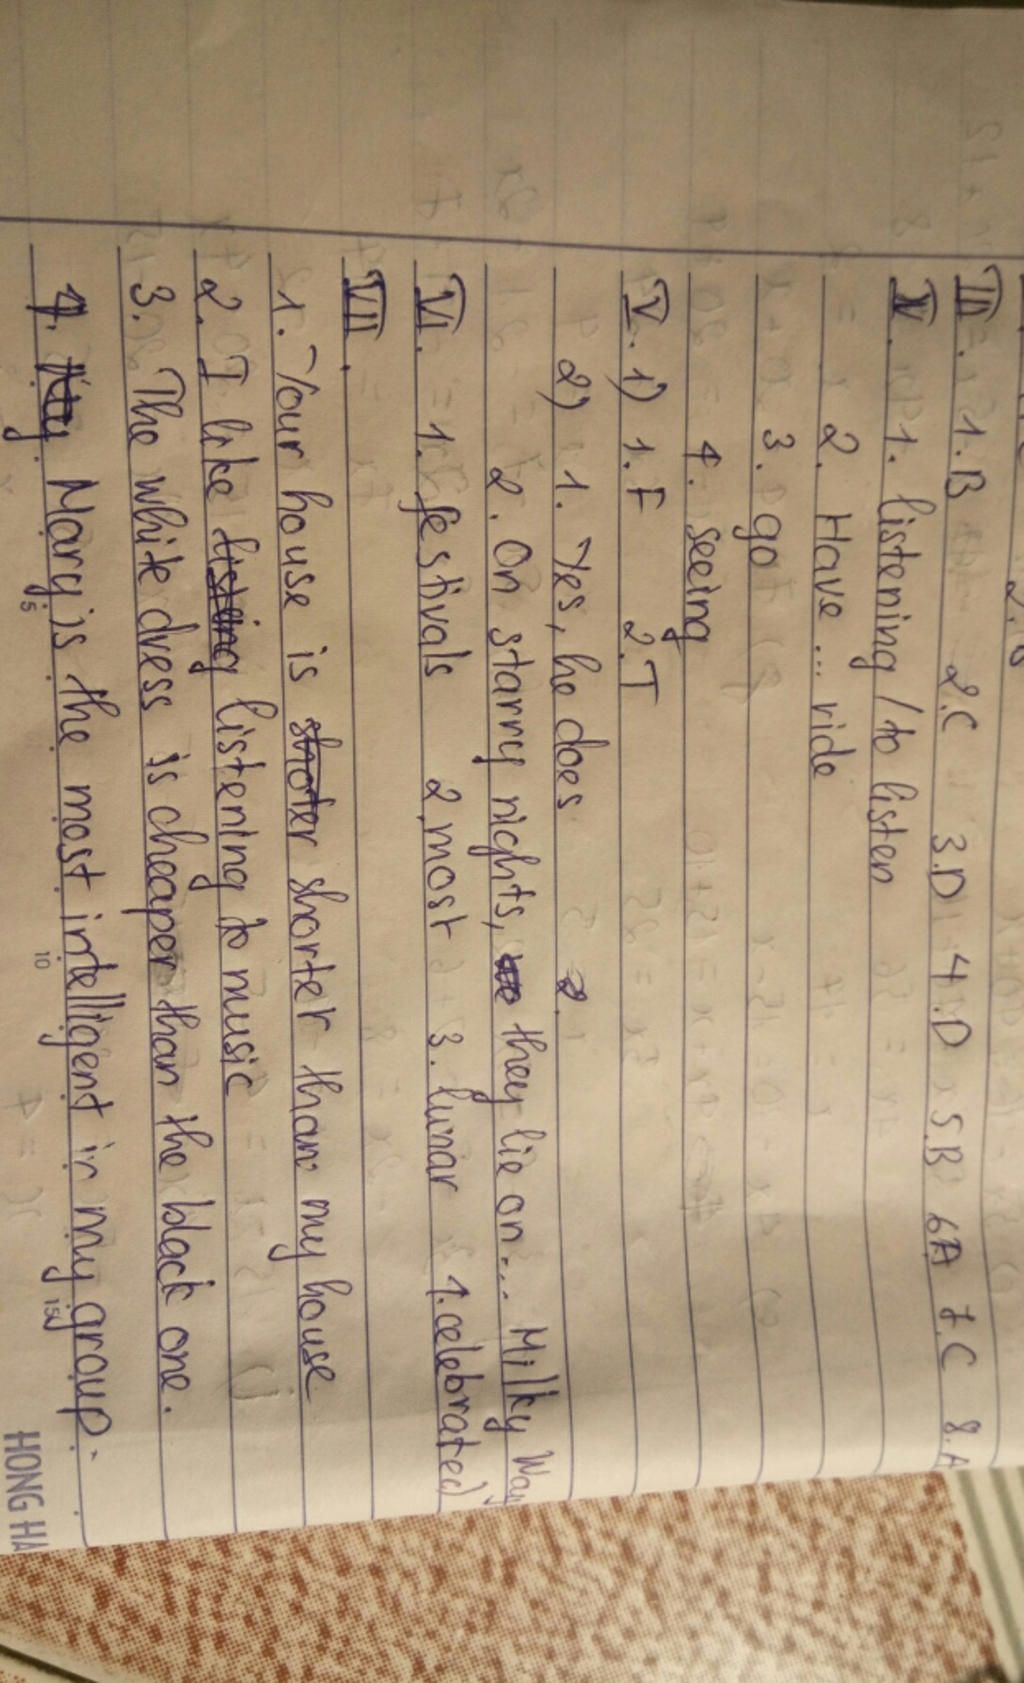 III. 1.B 2.C 3.D 4.D 5.B 6A 7.C 8.A
IV. 1. listening / to listen
2. Have ... ride
3. go
4. seeing
V. 1) 1.F 2.T
2) 1. Yes, he does
2. On starry nights, they lie on... Milky Way
VI. 1. festivals 2. most 3. lunar 4. celebrated
VII.
1. Your house is shorter than my house
2. I like listening to music
3. The white dress is cheaper than the black one.
4. Mary is the most intelligent in my group.
5 10 15
HONG HA